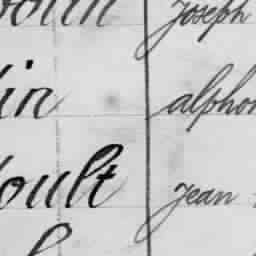 joseph
in alphon
oult jean